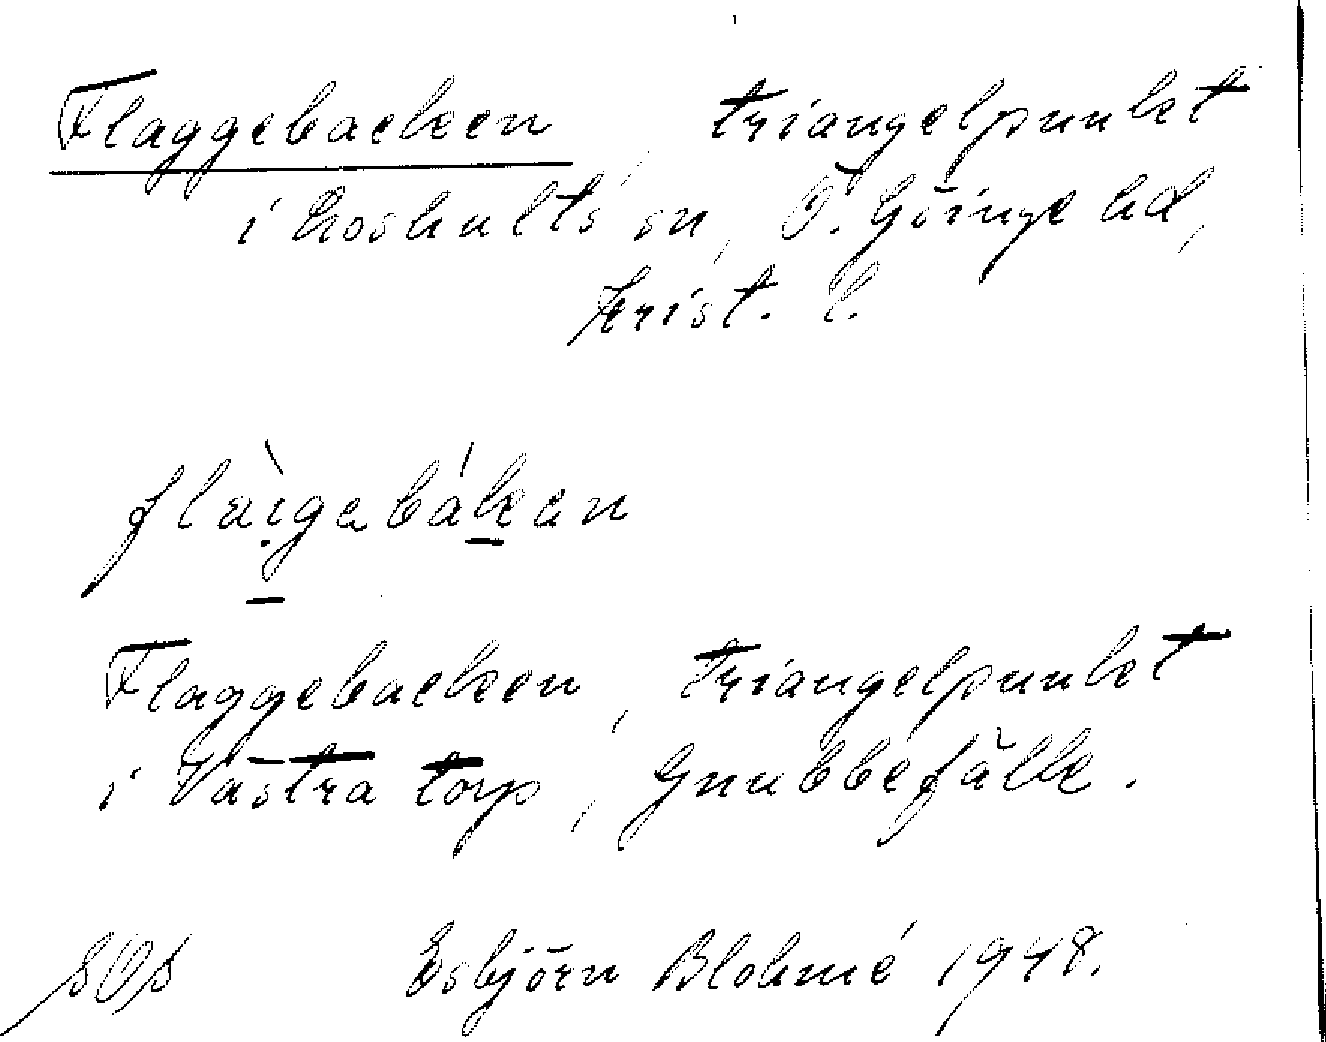 Flaggebacken, triangelpunkt
i Loshults sn, Ö. Göinge hd,
Krist. l.
Flaggebacken, triangelpunkt
i Västra torp, Gnubbefälle.
Esbjörn Blohmé 1948.